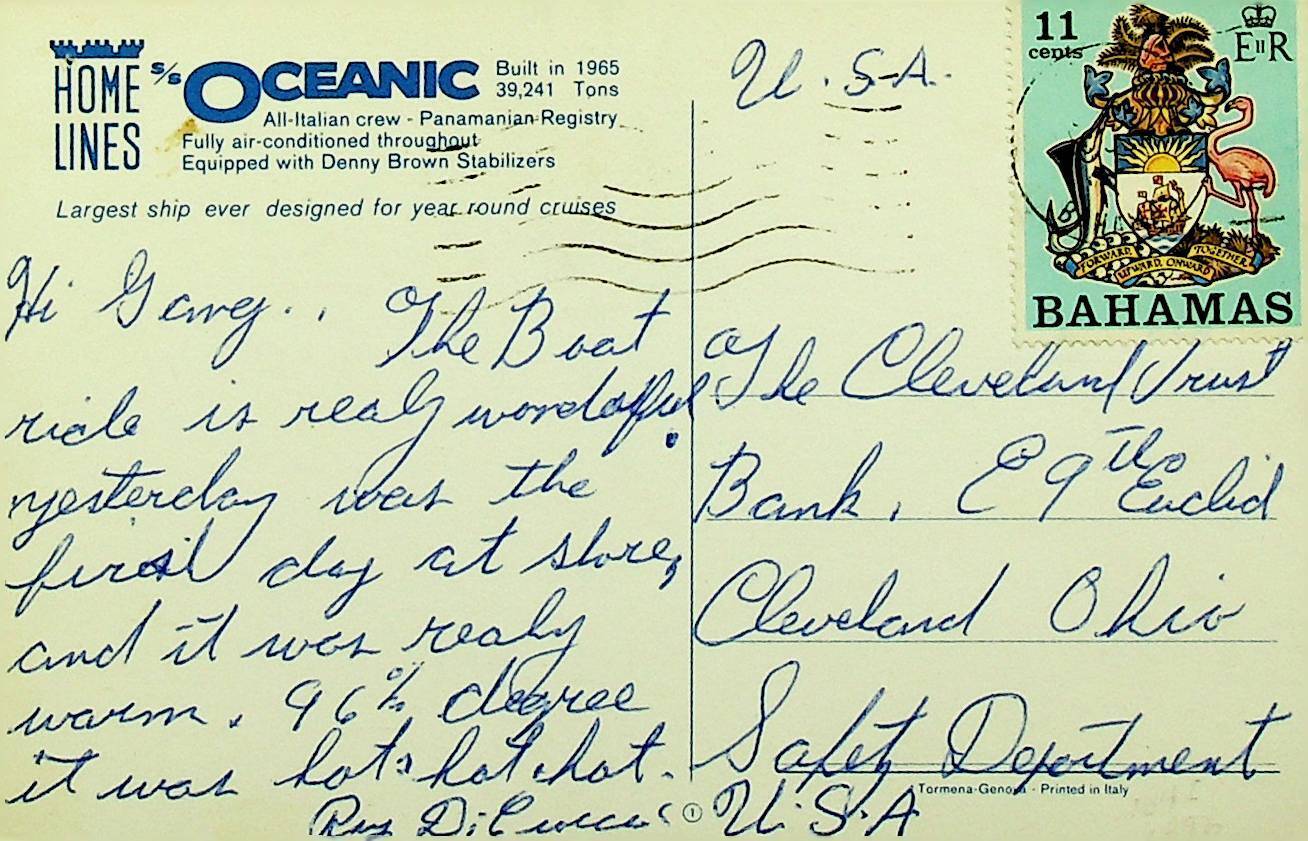 HOME
LINES
s/s OCEANIC
Built in 1965
39,241 Tons
All-Italian crew - Panamanian Registry
Fully air-conditioned throughout
Equipped with Denny Brown Stabilizers
Largest ship ever designed for year round cruises
Hi Gang.. The Boat
ride is realy wonderful.
yesterday was the
first day at shore,
and it was realy
warm. 96% degree
it was hot hot hot.
Ray
U.S.A.
11
cents
EIIR
FORWARD, UPWARD, ONWARD TOGETHER
BAHAMAS
The Cleveland Trust
Bank, E 9th Euclid
Cleveland Ohio
Safety Department
U.S.A
Tormena-Genova - Printed in Italy
1